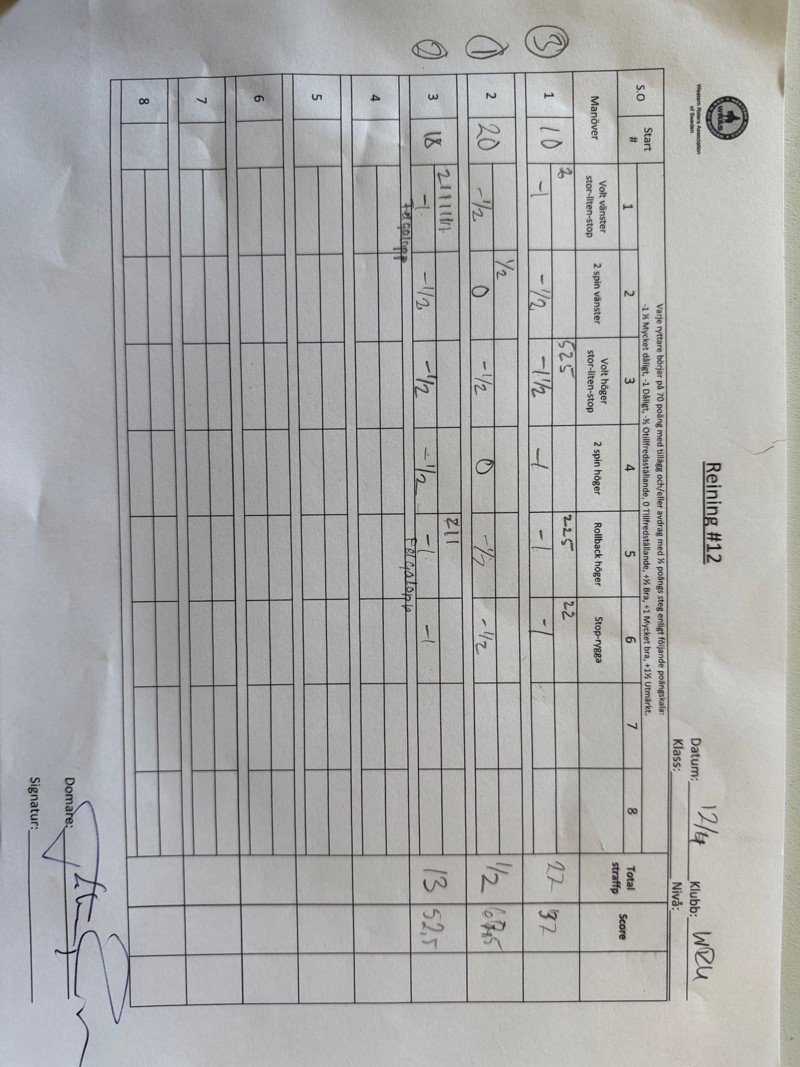 WRAS
Western Riders Association
of Sweden
Reining #12
Datum: 12/4 Klubb: WRU
Klass: Nivå:
Varje ryttare börjar på 70 poäng med tillägg och/eller avdrag med ½ poängs steg enligt följande poängskala:
-1 ½ Mycket dåligt, -1 Dåligt, -½ Otillfredsställande, 0 Tillfredställande, +½ Bra, +1 Mycket bra, +1½ Utmärkt.
S.O Start # 1 2 3 4 5 6 7 8 Total straffp Score
Manöver Volt vänster stor-liten-stop 2 spin vänster Volt höger stor-liten-stop 2 spin höger Rollback höger Stop-rygga
2 525 225 22
③ 1 10 -1 -1/2 -1 1/2 -1 -1 -1 27 37
1/2
① 2 20 -1/2 0 -1/2 0 -1/2 -1/2 1/2 67,5
21111111 211
② 3 18 -1 -1/2 -1/2 -1/2 -1 -1 13 52,5
Felgalopp Felgalopp
4
5
6
7
8
Domare:
Signatur: